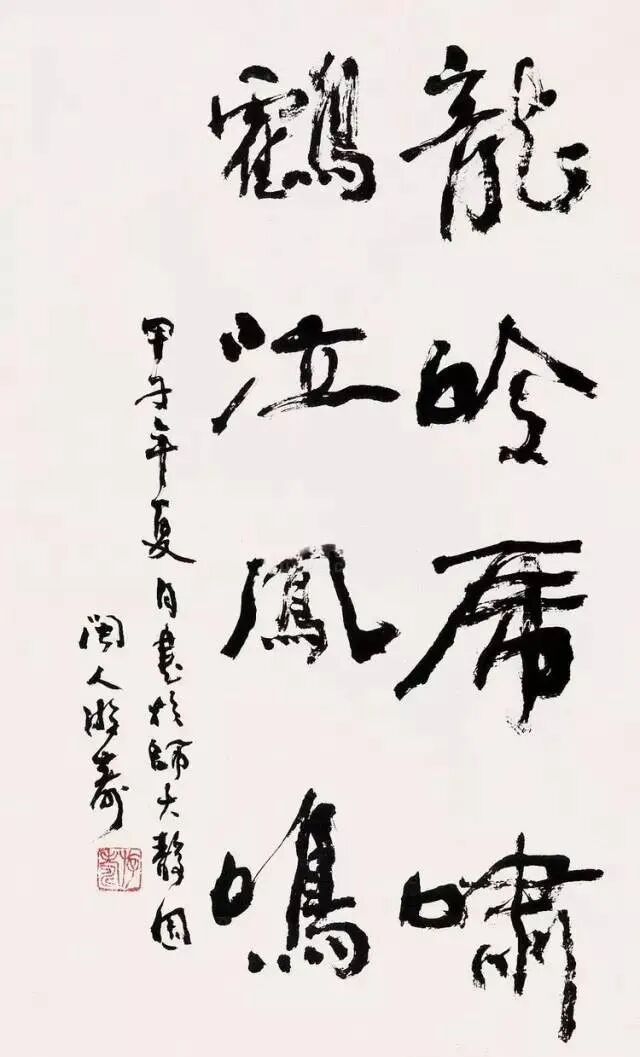 龍吟虎嘯
鸖泣鳳鳴
甲子年夏日書於師大靜園
閩人游壽
游壽